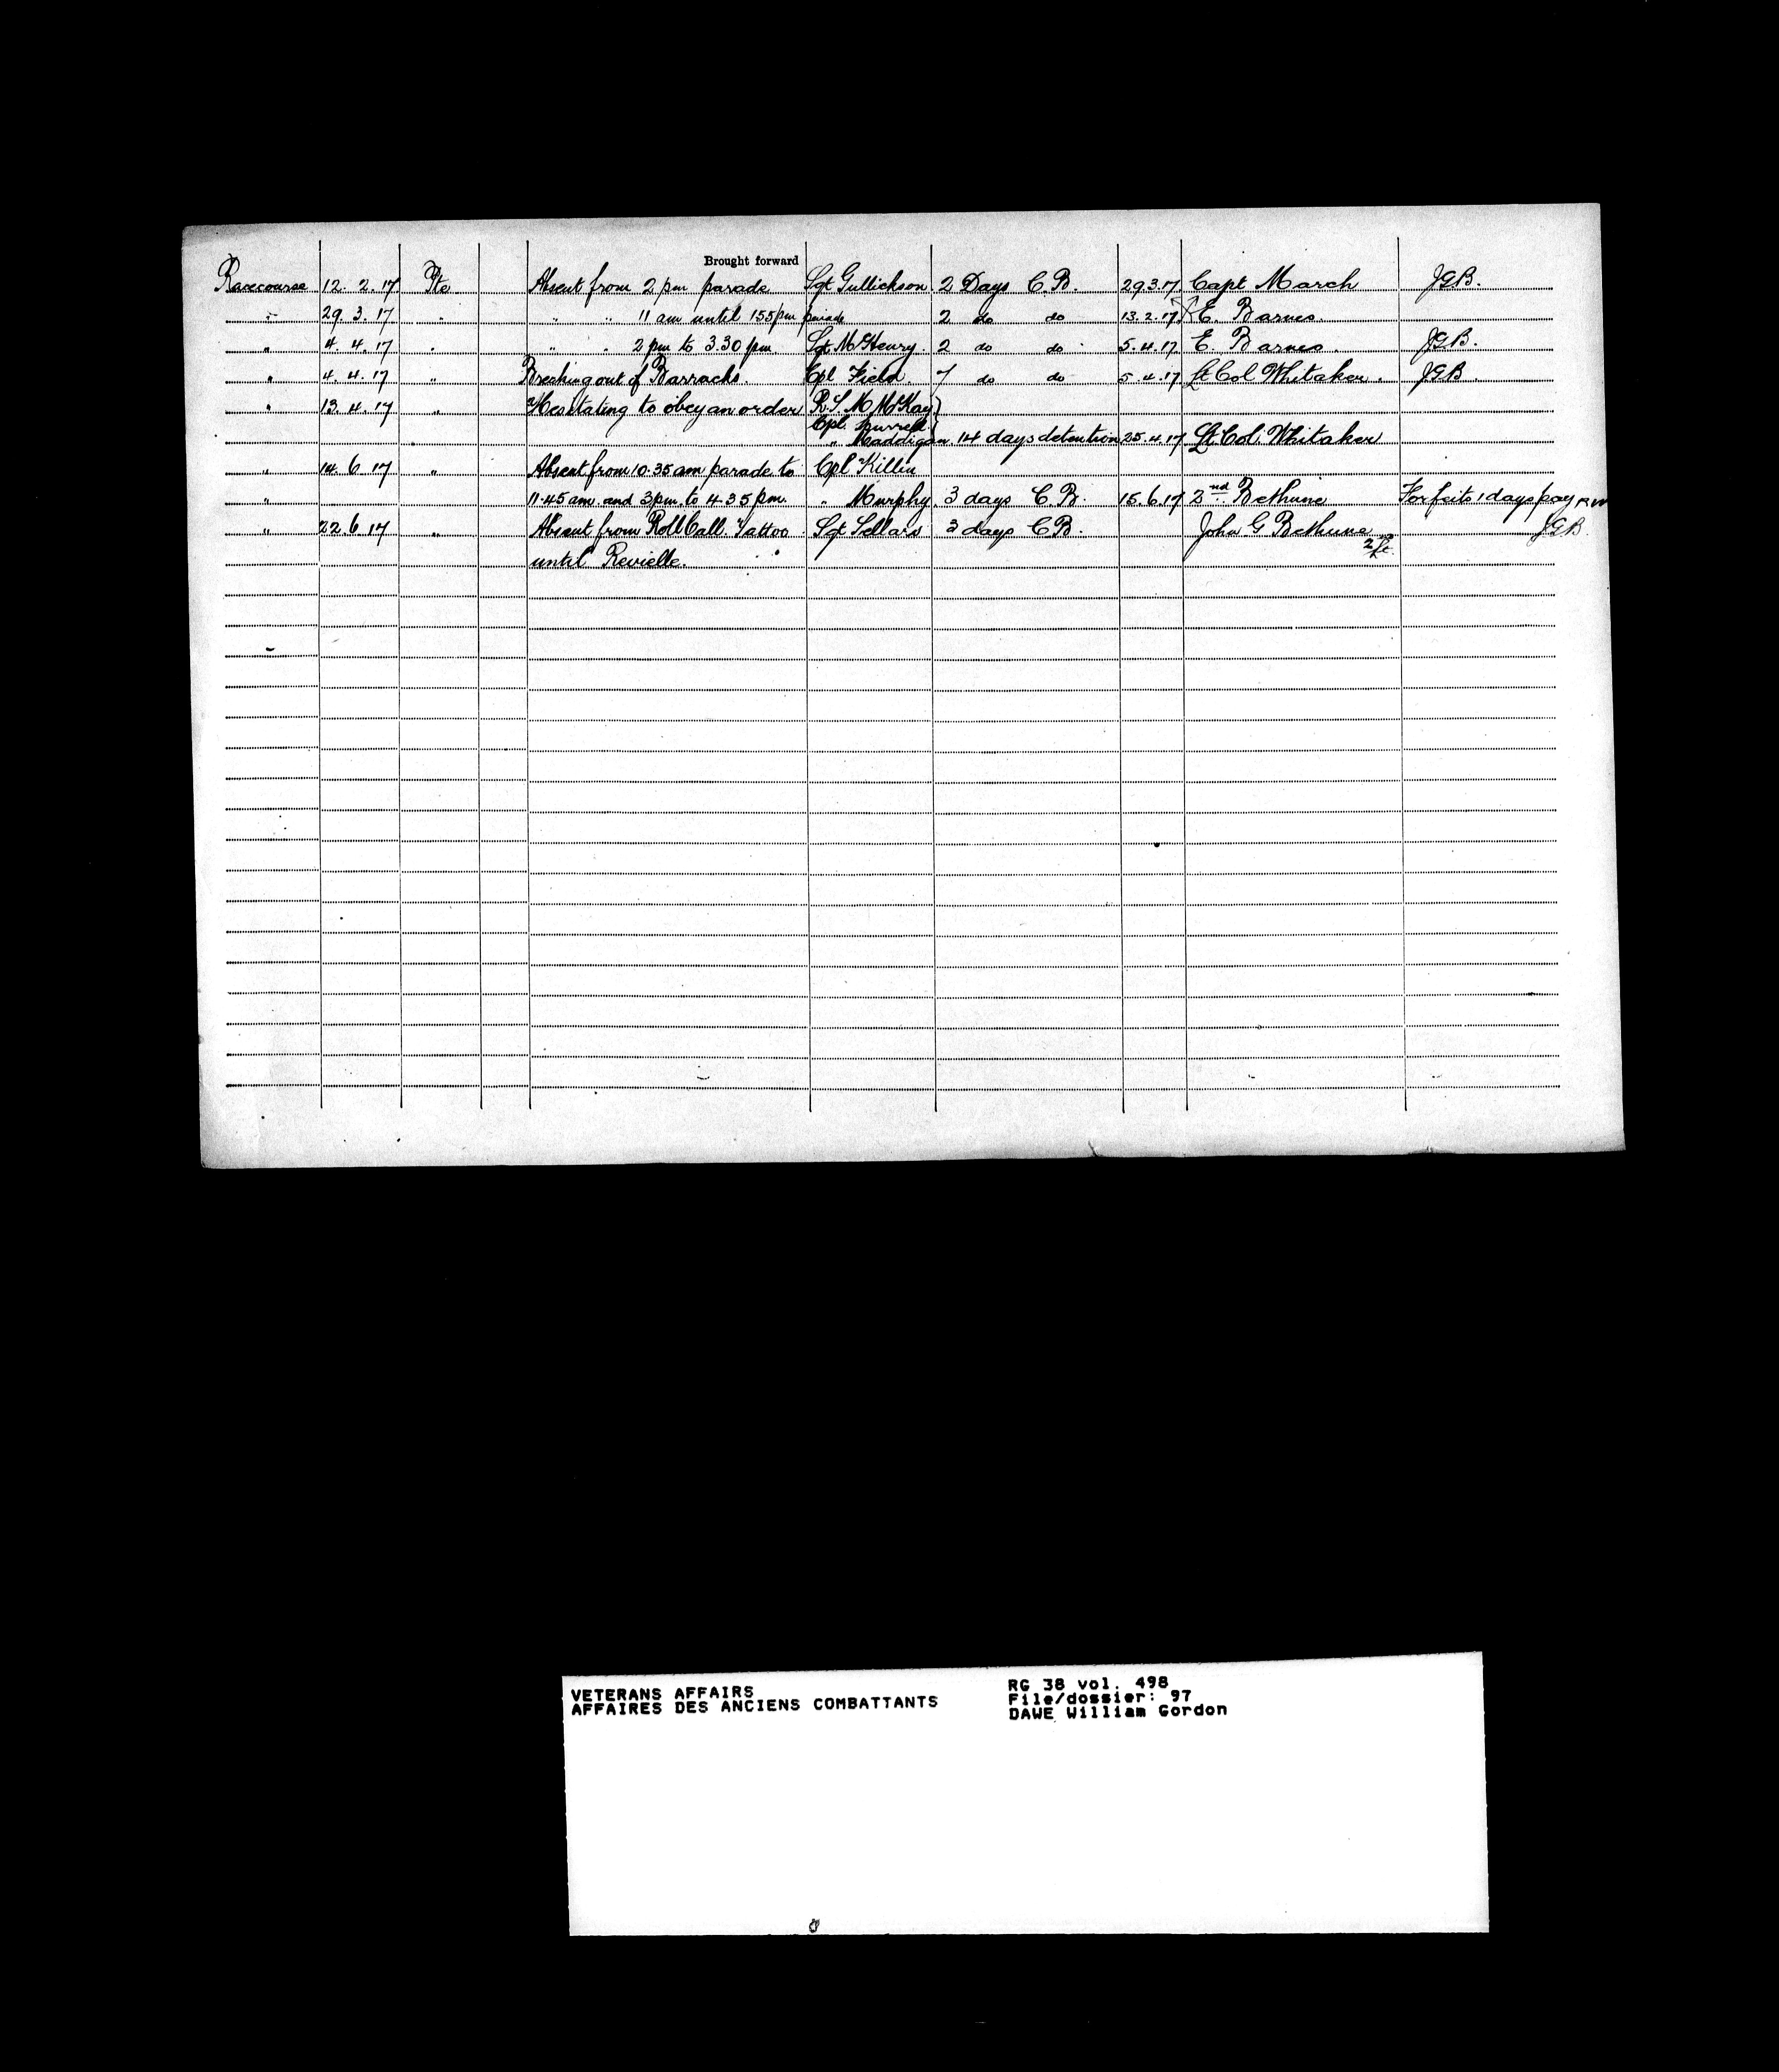 Brought forward
Racecourse 12. 2. 17 Pte Absent from 2 pm parade Sgt Gullickson 2 Days C.B. 29.3.17 Capt March JGB.
" 29. 3. 17 " " " 11 am until 155 pm parade 2 do do 13.2.17 E. Barnes
" 4. 4. 17 " " " 2 pm to 3.30 pm Sgt McHenry. 2 do do 5.4.17 E. Barnes. JGB.
" 4. 4. 17 " Breaking out of Barracks. Cpl Field 7 do do 5.4.17 Lt Col Whitaker. JGB.
" 13. 4. 17 " Hesitating to obey an order R.S.M McKay }
Cpl }
" " Maddigan 14 days detention 25.4.17 Lt Col. Whitaker
" 14. 6. 17 " Absent from 10.35 am parade to Cpl Killin
" 11.45 am. and 3 pm. to 4.35 pm. " Murphy. 3 days C.B. 15.6.17 2nd Bethune Forfeits 1 days pay RW
" 22. 6. 17 " Absent from Roll Call. Tattoo Sgt Sellars 3 days CB. John G Bethune JGB.
2/Lt.
until Revielle.
VETERANS AFFAIRS RG 38 vol. 498
AFFAIRES DES ANCIENS COMBATTANTS File/dossier: 97
DAWE William Gordon